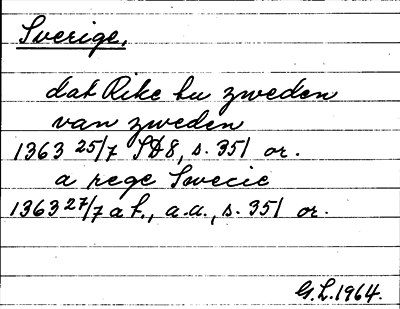 Sverige,
dat Rike tu zweden
van zweden
1363 25/7 SD8, s. 351 or.
a rege Swecie
1363 27/7 a f., a.a., s. 351 or.
G.L. 1964.